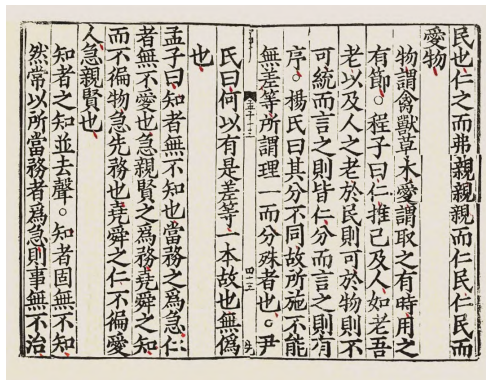 民也仁之而弗親親親而仁民仁民而
愛物
物謂禽獸草木愛謂取之有時用之
有節。程子曰仁推己及人如老吾
老以及人之老於民則可於物則不
可統而言之則皆仁分而言之則有
序。楊氏曰其分不同故所施不能
無差等所謂理一而分殊者也。尹
氏曰何以有是差等一本故也無僞
也
孟子曰知者無不知也當務之爲急仁
者無不愛也急親賢之爲務堯舜之知
而不徧物急先務也堯舜之仁不徧愛
人急親賢也
知者之知並去聲。知者固無不知
然常以所當務者爲急則事無不治